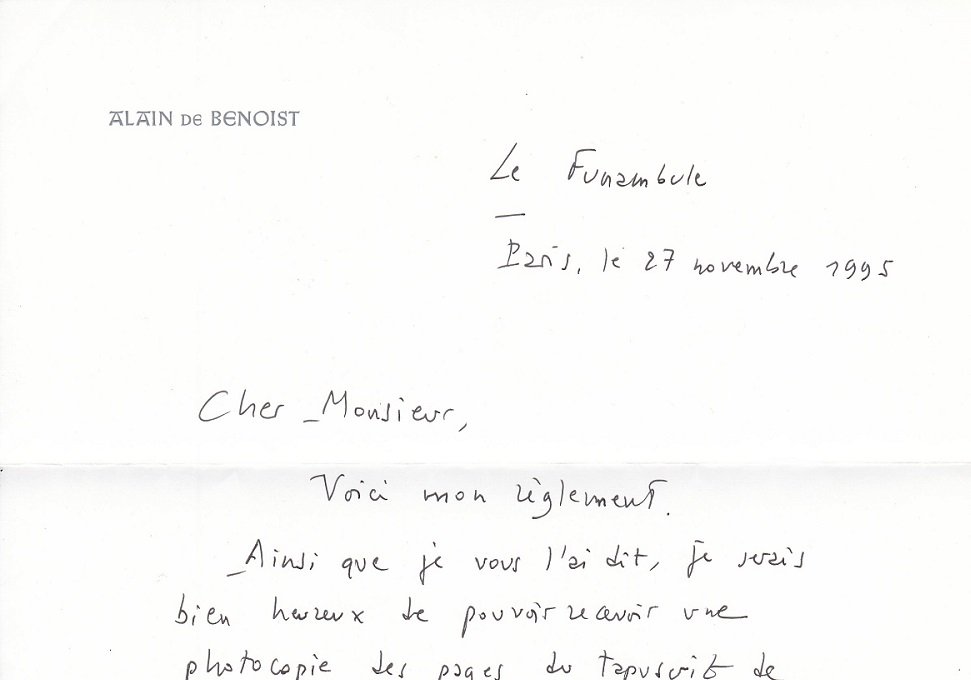 ALAIN DE BENOIST
Le Funambule
—
Paris, le 27 novembre 1995
Cher Monsieur,
Voici mon règlement.
Ainsi que je vous l'ai dit, je serais
bien heureux de pouvoir recevoir une
photocopie des pages du tapuscrit de